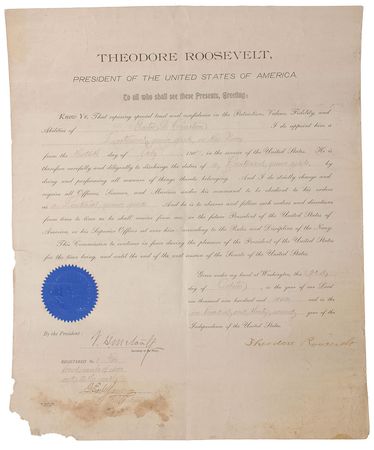 THEODORE ROOSEVELT,
PRESIDENT OF THE UNITED STATES OF AMERICA.
To all who shall see these Presents, Greeting:
KNOW YE, That reposing special trust and confidence in the Patriotism, Valour, Fidelity, and
Abilities of I do appoint him a
Lieutenant, junior grade in the Navy
from the day of in the service of the United States. He
is therefore carefully and diligently to discharge the duties of Lieutenant, junior grade, by
doing and performing all manner of things thereto belonging. And I do strictly charge and
require all Officers, Seamen, and Marines under his command to be obedient to his orders
as Lieutenant, junior grade. And he is to observe and follow such orders and directions
from time to time as he shall receive from me, or the future President of the United States of
America, or his Superior Officer set over him, according to the Rules and Discipline of the Navy.
This Commission to continue in force during the pleasure of the President of the United States for
the time being, and until the end of the next session of the Senate of the United States.
Given under my hand at Washington, this
day of in the year of our Lord
one thousand nine hundred and and in the
one hundred and year of the
Independence of the United States.
By the President:
Theodore Roosevelt
Secretary of the Navy.
REGISTERED No.